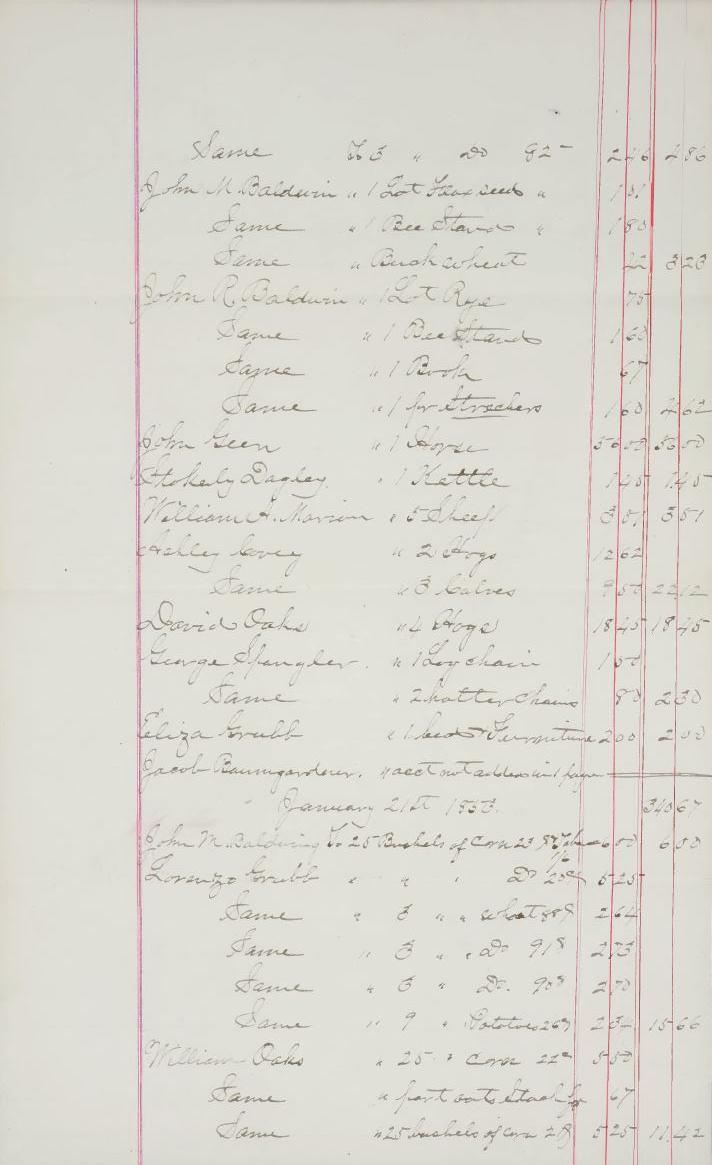 Same To 3 " Do 82 246 486
John M Baldwin " 1 Lot Flax seed " 1 21
Same " 1 Bee Stand " 1 80
Same " Buckwheat 22 323
John R. Baldwin " 1 Lot Rye 75
Same " 1 Bee Stand 1 60
Same " 1 Book 67
Same " 1 pr Strechers 1 60 462
John Geen " 1 Horse 5600 5600
Stokely Dagley. " 1 Kettle 145 145
William H. Marion " 5 Sheep 351 351
Ashley Covey " 2 Hogs 1262
Same " 3 Calves 950 2212
David Oaks " 4 Hogs 1845 1845
George Spangler. " 1 Log chain 150
Same " 2 halter chains 80 230
Eliza Grubb " 1 bed & Furniture 200 200
Jacob Baumgardner. " acct not added in 1 page
January 21st 1853. 34067
John M. Baldwin To 25 Bushels of Corn 600 600
Lorenzo Grubb " " " Do 525
Same " 3 " " wheat 88 264
Same " 3 " " Do 91 273
Same " 3 " Do. 90 270
Same " 9 " Potatoes 26 234 1566
William Oaks " 25 " Corn 22 550
Same " part oats Stack 67
Same " 25 bushels of corn 21 525 1142